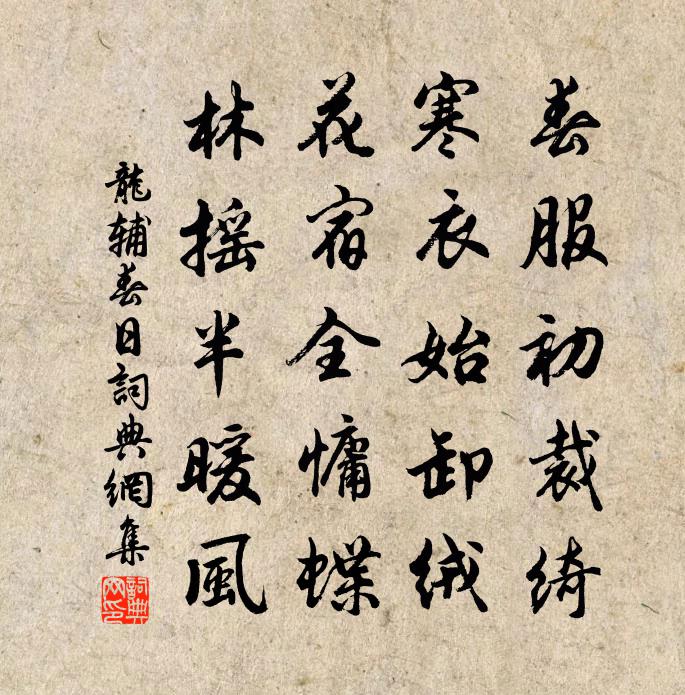 春服初裁绮
寒衣始卸绒
花宿全慵蝶
林摇半暖風
龍辅春日詞典網集
詞典網印